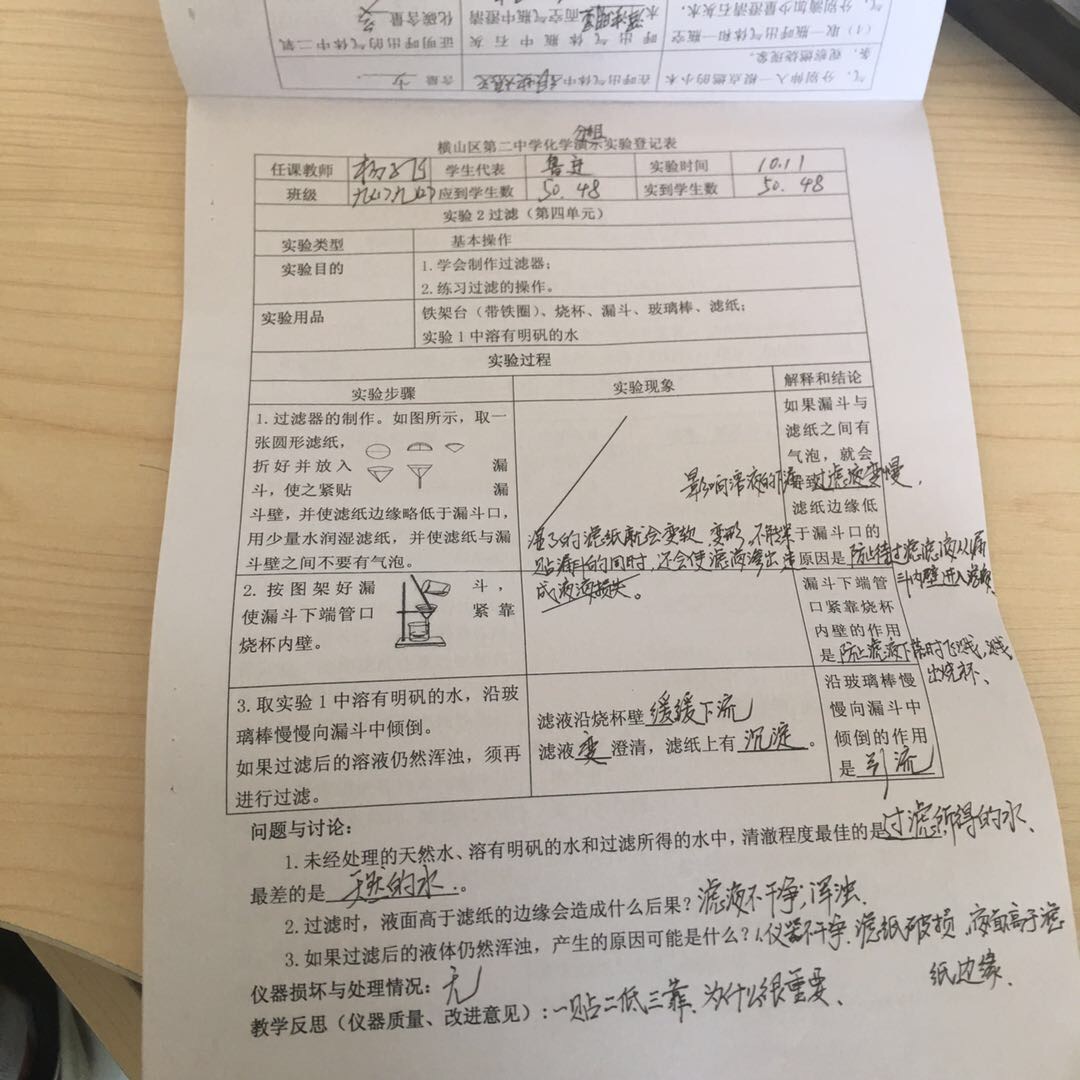 气，分别伸入一根点燃的小木
条，观察燃烧现象。
在呼出气体中
含量 少
(1) 取一瓶呼出气体和一瓶空
气，分别滴加少量澄清石灰水。
呼出气体瓶中石灰
而空气瓶中澄清
证明呼出的气体中二氧
化碳含量
分组
横山区第二中学化学演示实验登记表
任课教师 学生代表 鲁 实验时间 10.11
班级 应到学生数 50. 48 实到学生数 50. 48
实验2过滤（第四单元）
实验类型 基本操作
实验目的 1.学会制作过滤器；
2.练习过滤的操作。
实验用品 铁架台（带铁圈）、烧杯、漏斗、玻璃棒、滤纸；
实验1中溶有明矾的水
实验过程
实验步骤 实验现象 解释和结论
1.过滤器的制作。如图所示，取一
张圆形滤纸，
折好并放入 漏
斗，使之紧贴 漏
斗壁，并使滤纸边缘略低于漏斗口，
用少量水润湿滤纸，并使滤纸与漏
斗壁之间不要有气泡。
湿了的滤纸就会变软 变形，不能
贴漏斗的同时，还会使滤液渗出造
成液滴损失。
如果漏斗与
滤纸之间有
气泡，就会
影响溶液的 过滤速变慢，
滤纸边缘低
于漏斗口的
原因是 防止待过滤滤液从漏
斗内壁进入
2.按图架好漏 斗，
使漏斗下端管口 紧靠
烧杯内壁。
漏斗下端管
口紧靠烧杯
内壁的作用
是 防止滤液下落时飞溅，溅
出烧杯、
3.取实验1中溶有明矾的水，沿玻
璃棒慢慢向漏斗中倾倒。
如果过滤后的溶液仍然浑浊，须再
进行过滤。
滤液沿烧杯壁 缓缓下流
滤液 变 澄清，滤纸上有 沉淀 。
沿玻璃棒慢
慢向漏斗中
倾倒的作用
是 引流
问题与讨论：
1.未经处理的天然水、溶有明矾的水和过滤所得的水中，清澈程度最佳的是 过滤所得的水、
最差的是 天然的水 。
2.过滤时，液面高于滤纸的边缘会造成什么后果？滤液不干净，浑浊.
3.如果过滤后的液体仍然浑浊，产生的原因可能是什么？仪器不干净、滤纸破损、液面高于滤
纸边缘.
仪器损坏与处理情况：无
教学反思（仪器质量、改进意见）：一贴二低三靠、为什么很重要、